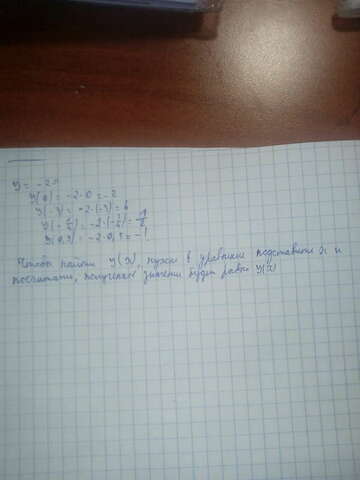 y = -2x
y(0) = -2·0 = -2
y(-3) = -2·(-3) = 6
= -2·
y(0,5) = -2·0,5 = -1
Чтобы найти y(x), нужно в уравнение подставить x и
посчитать, полученное значение будет равно y(x)